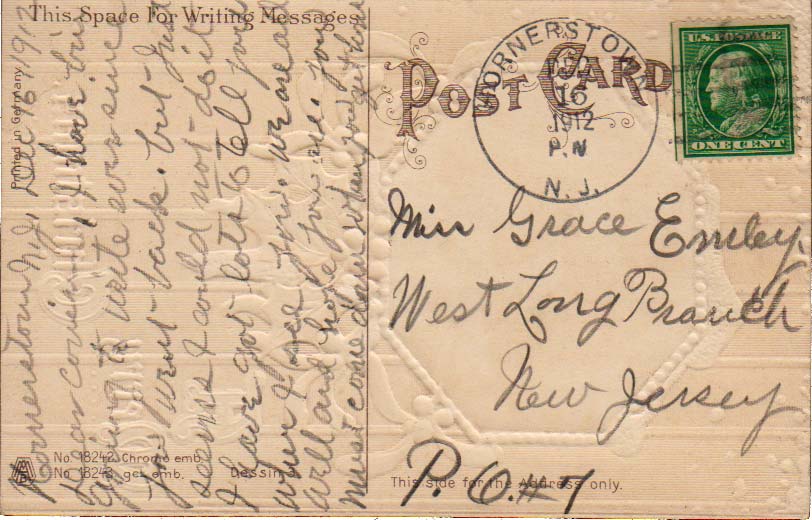 This Space For Writing Messages
Hornerstown N.J. Dec 16 1912
Dear cousin, I have been
trying to write ever since
you went back. but just
seems I could not do it
I have got lots to tell you
when I see you. we are all
well and hope you are. you
must come down when you get time
Printed in Germany
No. 18242. Chromo emb.
No. 18243. gel. emb.
Dessin 3
POST CARD
HORNERSTOWN
DEC
16
1912
P.M
N. J.
U.S. POSTAGE
ONE CENT
Miss Grace Emley
West Long Branch
New Jersey
P. O. # 7
This side for the Address only.